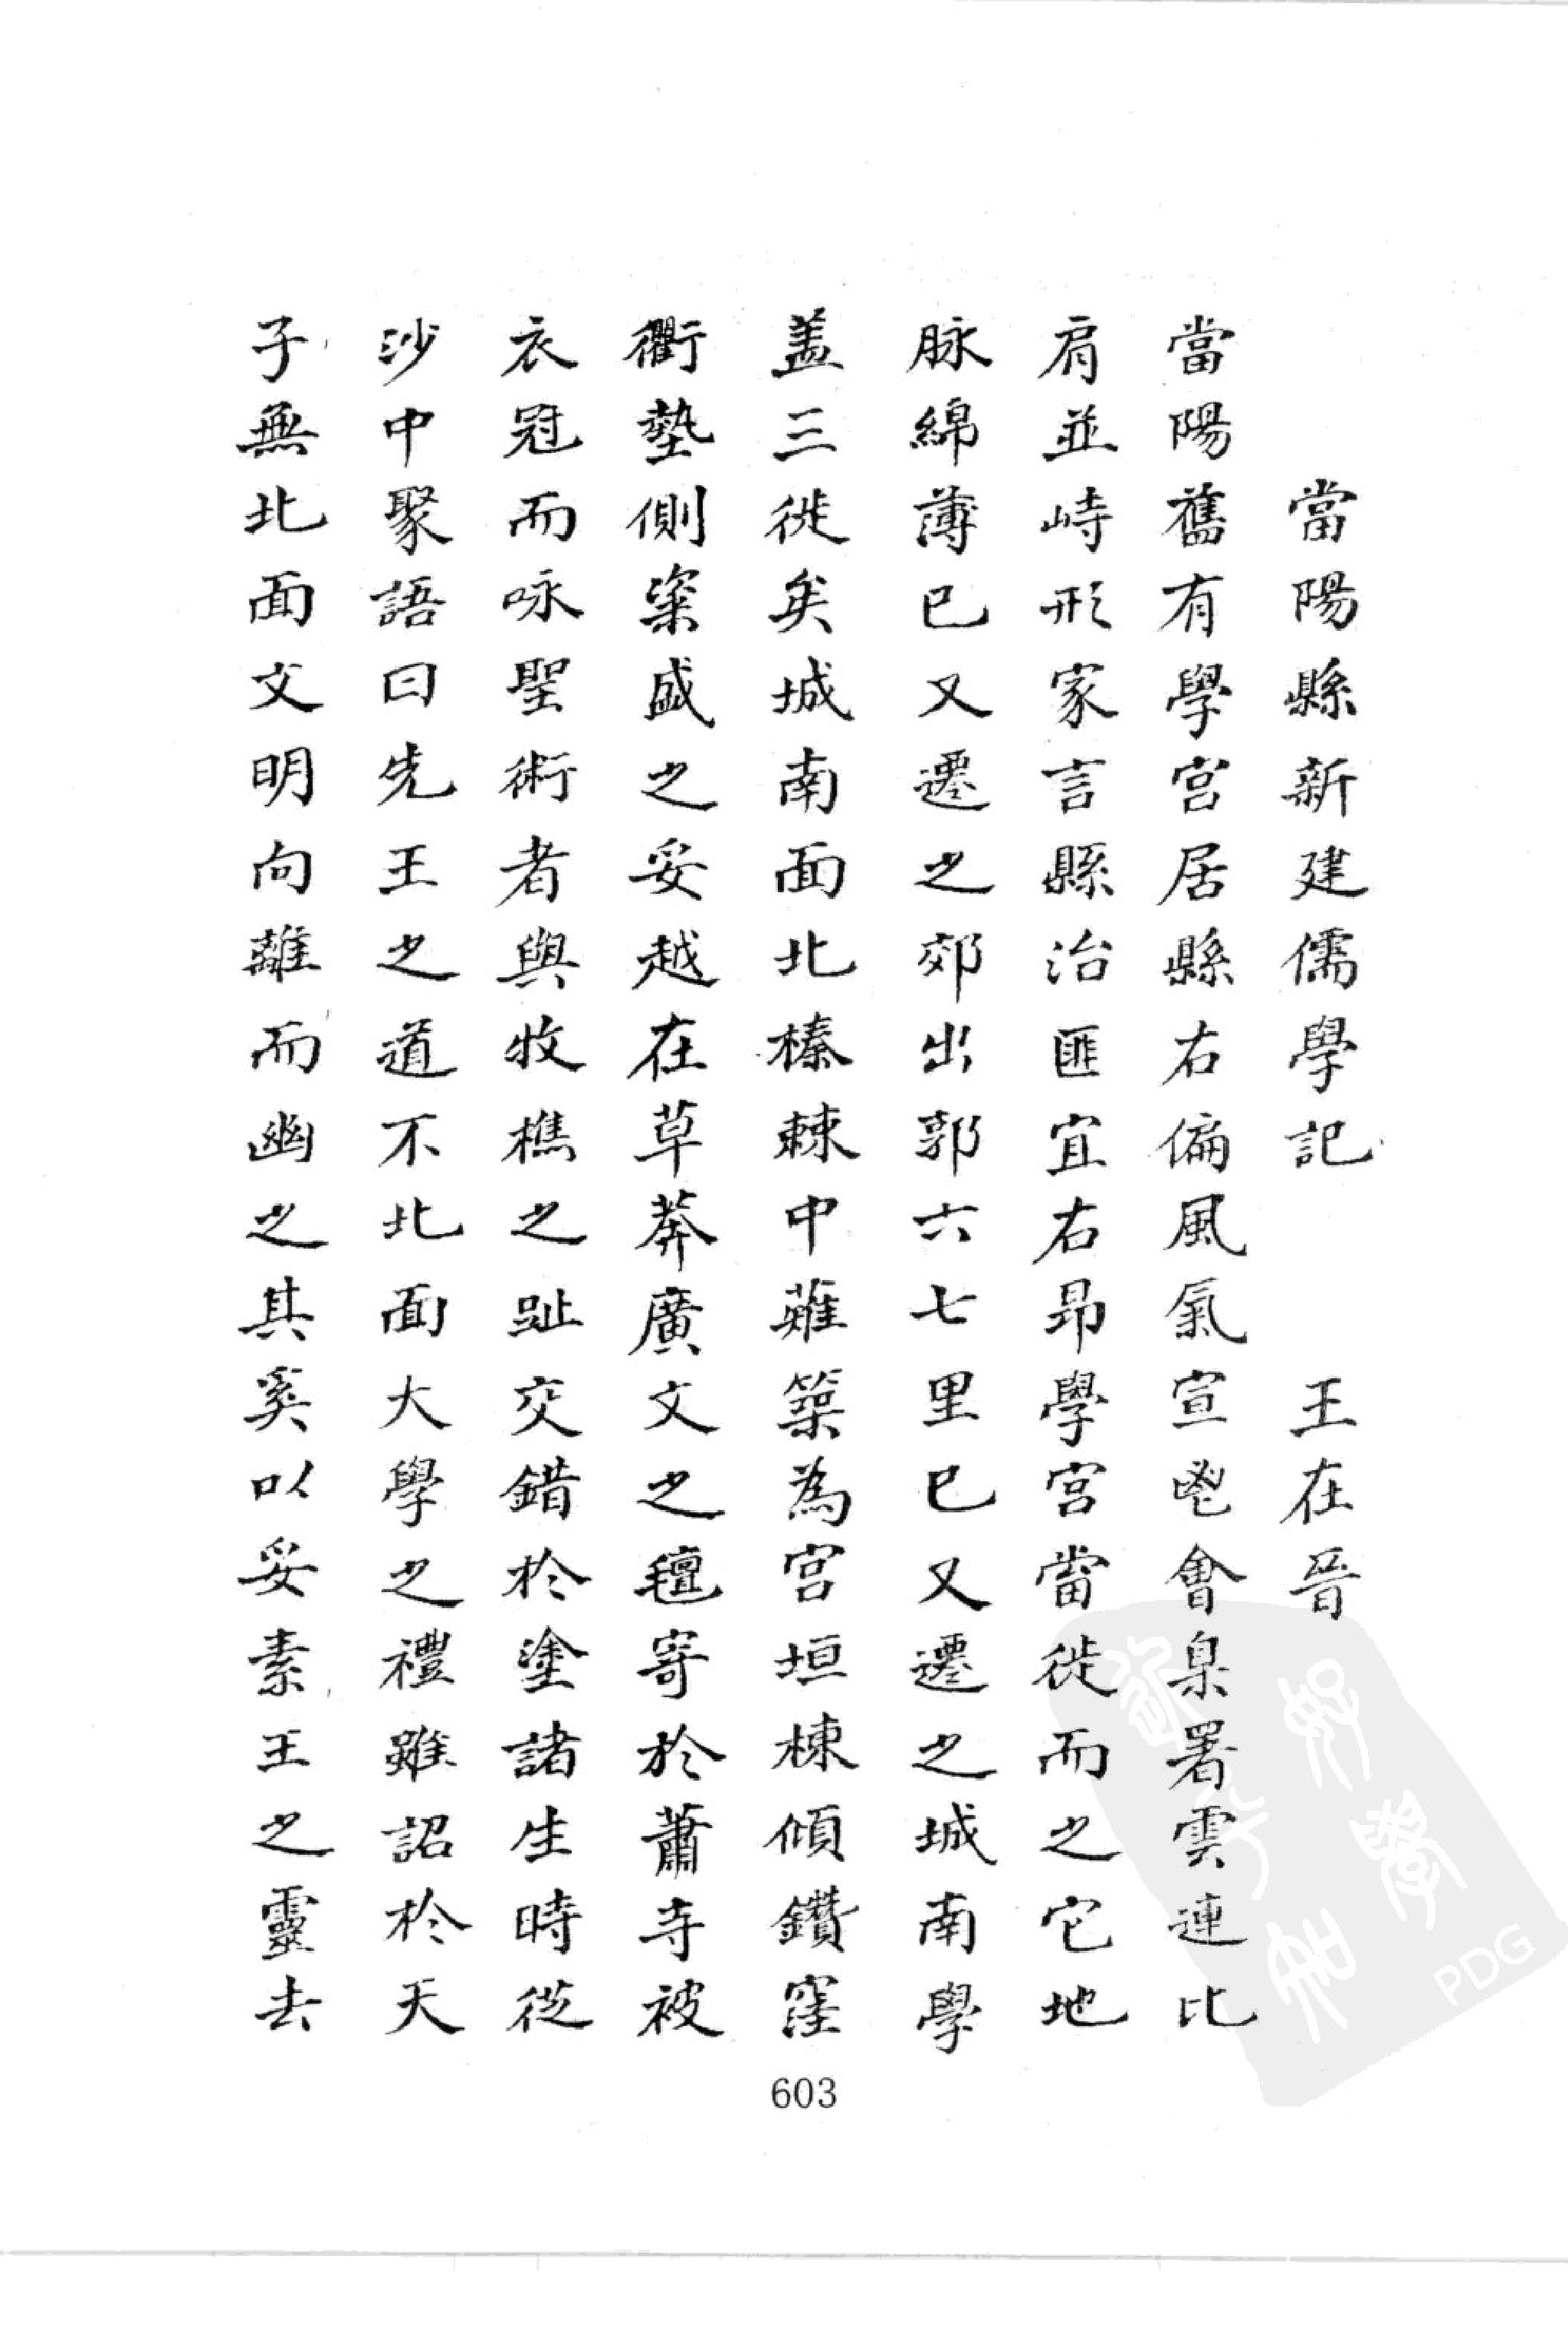 當陽縣新建儒學記 王在晉
當陽舊有學宮居縣右偏風氣宣鬯會臬署雲連比
肩並峙形家言縣治匪宜右昂學宮當徙而之它地
脉綿薄已又遷之郊出郭六七里已又遷之城南學
盖三徙矣城南面北榛棘中薙築為宮垣棟傾鑽窪
衢墊側粢盛之妥越在草莽廣文之氊寄於蕭寺被
衣冠而咏聖術者與牧樵之趾交錯於塗諸生時從
沙中聚語曰先王之道不北面大學之禮雖詔於天
子無北面文明向離而幽之其奚以妥素王之靈去
603
PDG